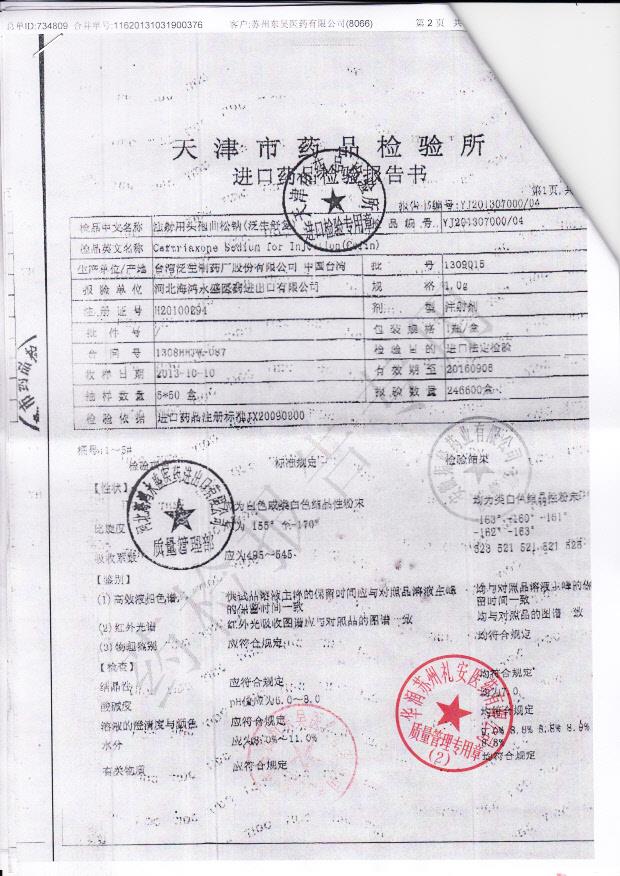 总单ID:734809 合并单号:11620131031900376 客户:苏州东吴医药有限公司(8066) 第 2 页 共
天津市药品检验所
进口药品检验报告书
第1页,共
报告书编号:YJ201307000/04
检品中文名称 注射用头孢曲松钠(泛生舒复 检品编号 YJ201307000/04
检品英文名称 Ceftriaxone Sodium for Injection
生产单位/产地 台湾泛生制药厂股份有限公司 中国台湾 批 号 1309Q15
报验单位 河北海鸿永盛医药进出口有限公司 规 格 1.0g
注册证号 H20100294 剂 型 注射剂
批件号 包装规格 1瓶/盒
合同号 检验目的 进口法定检验
收样日期 2013-10-10 有效期至 20160908
抽样数量 5*50盒 报验数量 246600盒
检验依据 进口药品注册标准JX20090200
桶号:1~5#
检验项目 标准规定 检验结果
【性状】
应为白色或类白色结晶性粉末 均为类白色结晶性粉末
比旋度 应为-155°至-170° -163° -160° -161°
-162° -163°
吸收系数 应为495~545 523 521 521 521 525
【鉴别】
(1)高效液相色谱 供试品溶液主峰的保留时间应与对照品溶液主峰 均与对照品溶液主峰的保
的保留时间一致 留时间一致
(2)红外光谱 红外光吸收图谱应与对照品的图谱一致 均与对照品的图谱一致
(3)钠盐鉴别 应符合规定 均符合规定
【检查】
结晶性 应符合规定 均符合规定
酸碱度 pH值应为6.0~8.0 均为7.0
溶液的澄清度与颜色 应符合规定 均符合规定
水分 应为8.0%~11.0% 8.8% 8.8% 8.9%
8.8%
有关物质 应符合规定 均符合规定
天津市药品检验所
进口检验专用章
河北海鸿永盛医药进出口有限公司
质量管理部
华润苏州礼安医药有限公司
质量管理专用章
(2)